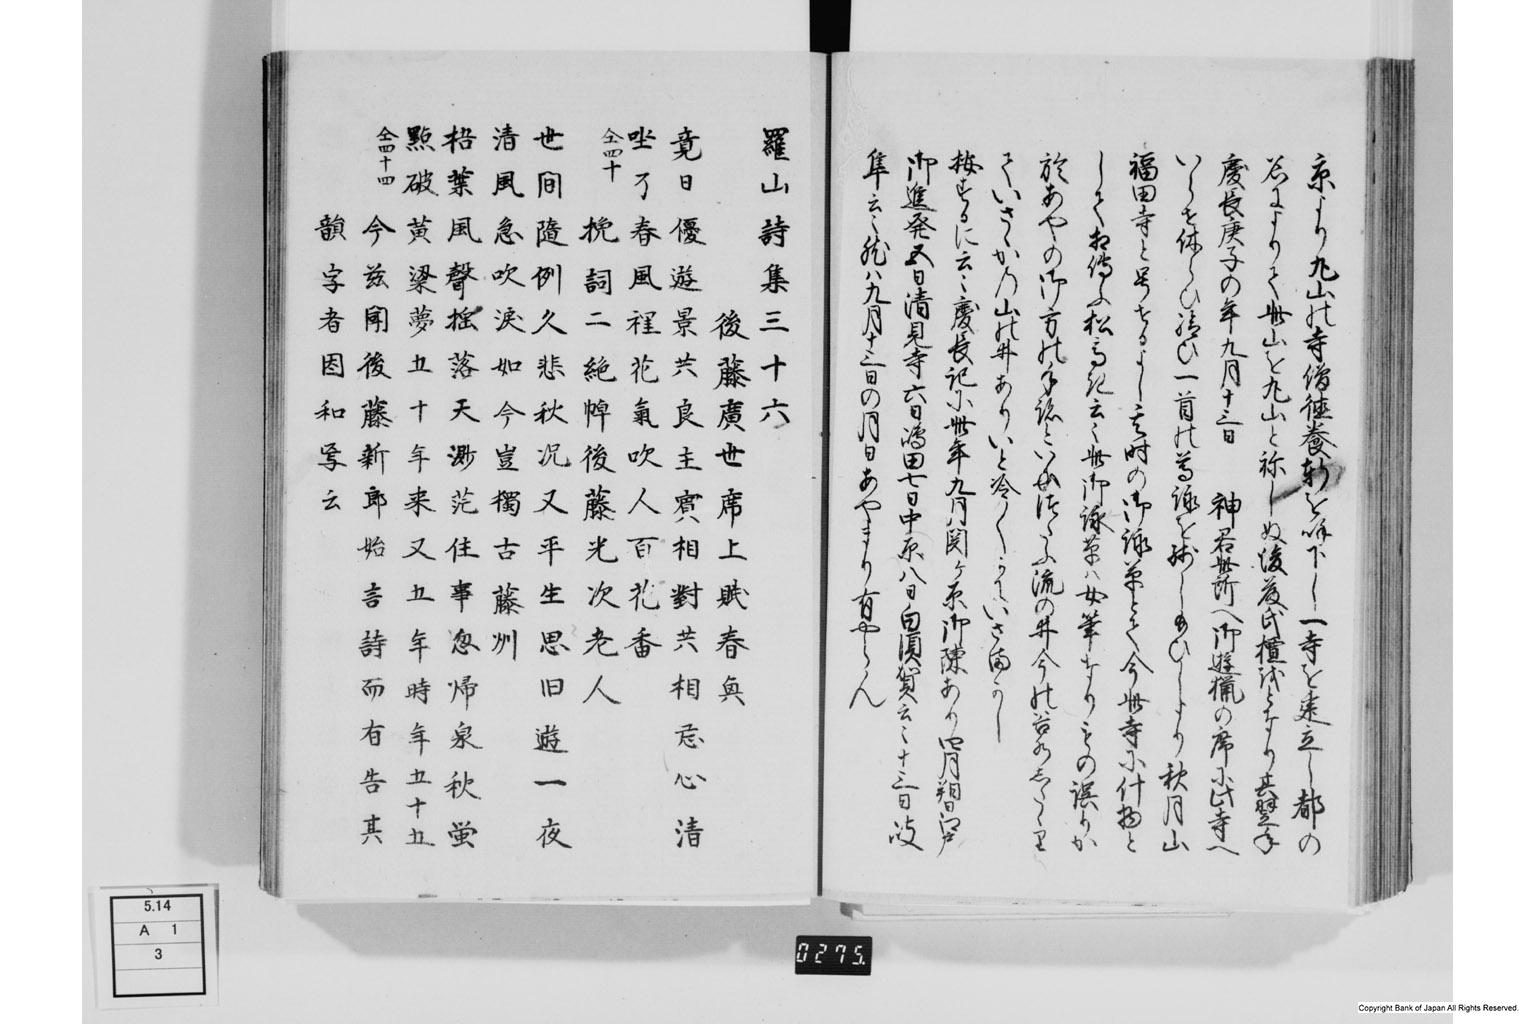 京より丸山の寺僧徳養軒を呼下し一寺を建立し都の
名によりて此山を丸山と称しぬ後藤氏檀越となり其翌年
慶長庚子の年九月十三日 神君此所へ御遊猟の席に此寺へ
いらせ休らひ給ひ一首の尊詠を残し給ひしより秋月山
福田寺と号するよし其時の御詠草とて今此寺に什物と
して相伝ふ松高記云々此御詠草ハ女筆なりもの誤りか
於あやの御方の手跡といひ伝ふ流の井今の谷
ていさゝかの山の井ありいと冷
按するに云々慶長記に此年九月ハ関ヶ原御陳あり四月朔日江戸
御進発五日清見寺六日嶋田七日中原八日白須賀云々十三日岐
阜云々然ハ九月十三日の月日あやまり有やらん
羅山詩集三十六
後藤廣世席上賦春興
竟日優遊景共良主賓相對共相忘心清
坐了春風裡花氣吹人百花香
仝四十 挽詞二絶悼後藤光次老人
世間隨例久悲秋况又平生思旧遊一夜
清風急吹淚如今豈獨古藤州
梧葉風聲揺落天渺茫住事忽帰泉秋蛍
點破黃粱夢五十年来又五年時年五十五
仝四十四 今茲聞後藤新郎始言詩而有告其
韻字者因和写云
5.14
A 1
3
0275.
Copyright Bank of Japan All Rights Reserved.